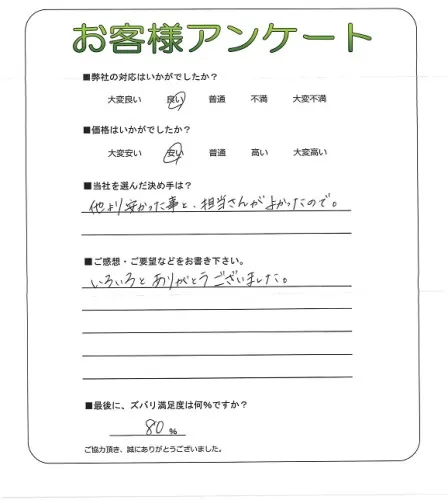 お客様アンケート
■弊社の対応はいかがでしたか?
大変良い 良い 普通 不満 大変不満
■価格はいかがでしたか?
大変安い 安い 普通 高い 大変高い
■当社を選んだ決め手は?
他より安かった事と、担当さんがよかったので。
■ご感想・ご要望などをお書き下さい。
いろいろとありがとうございました。
■最後に、ズバリ満足度は何%ですか?
80 %
ご協力頂き、誠にありがとうございました。